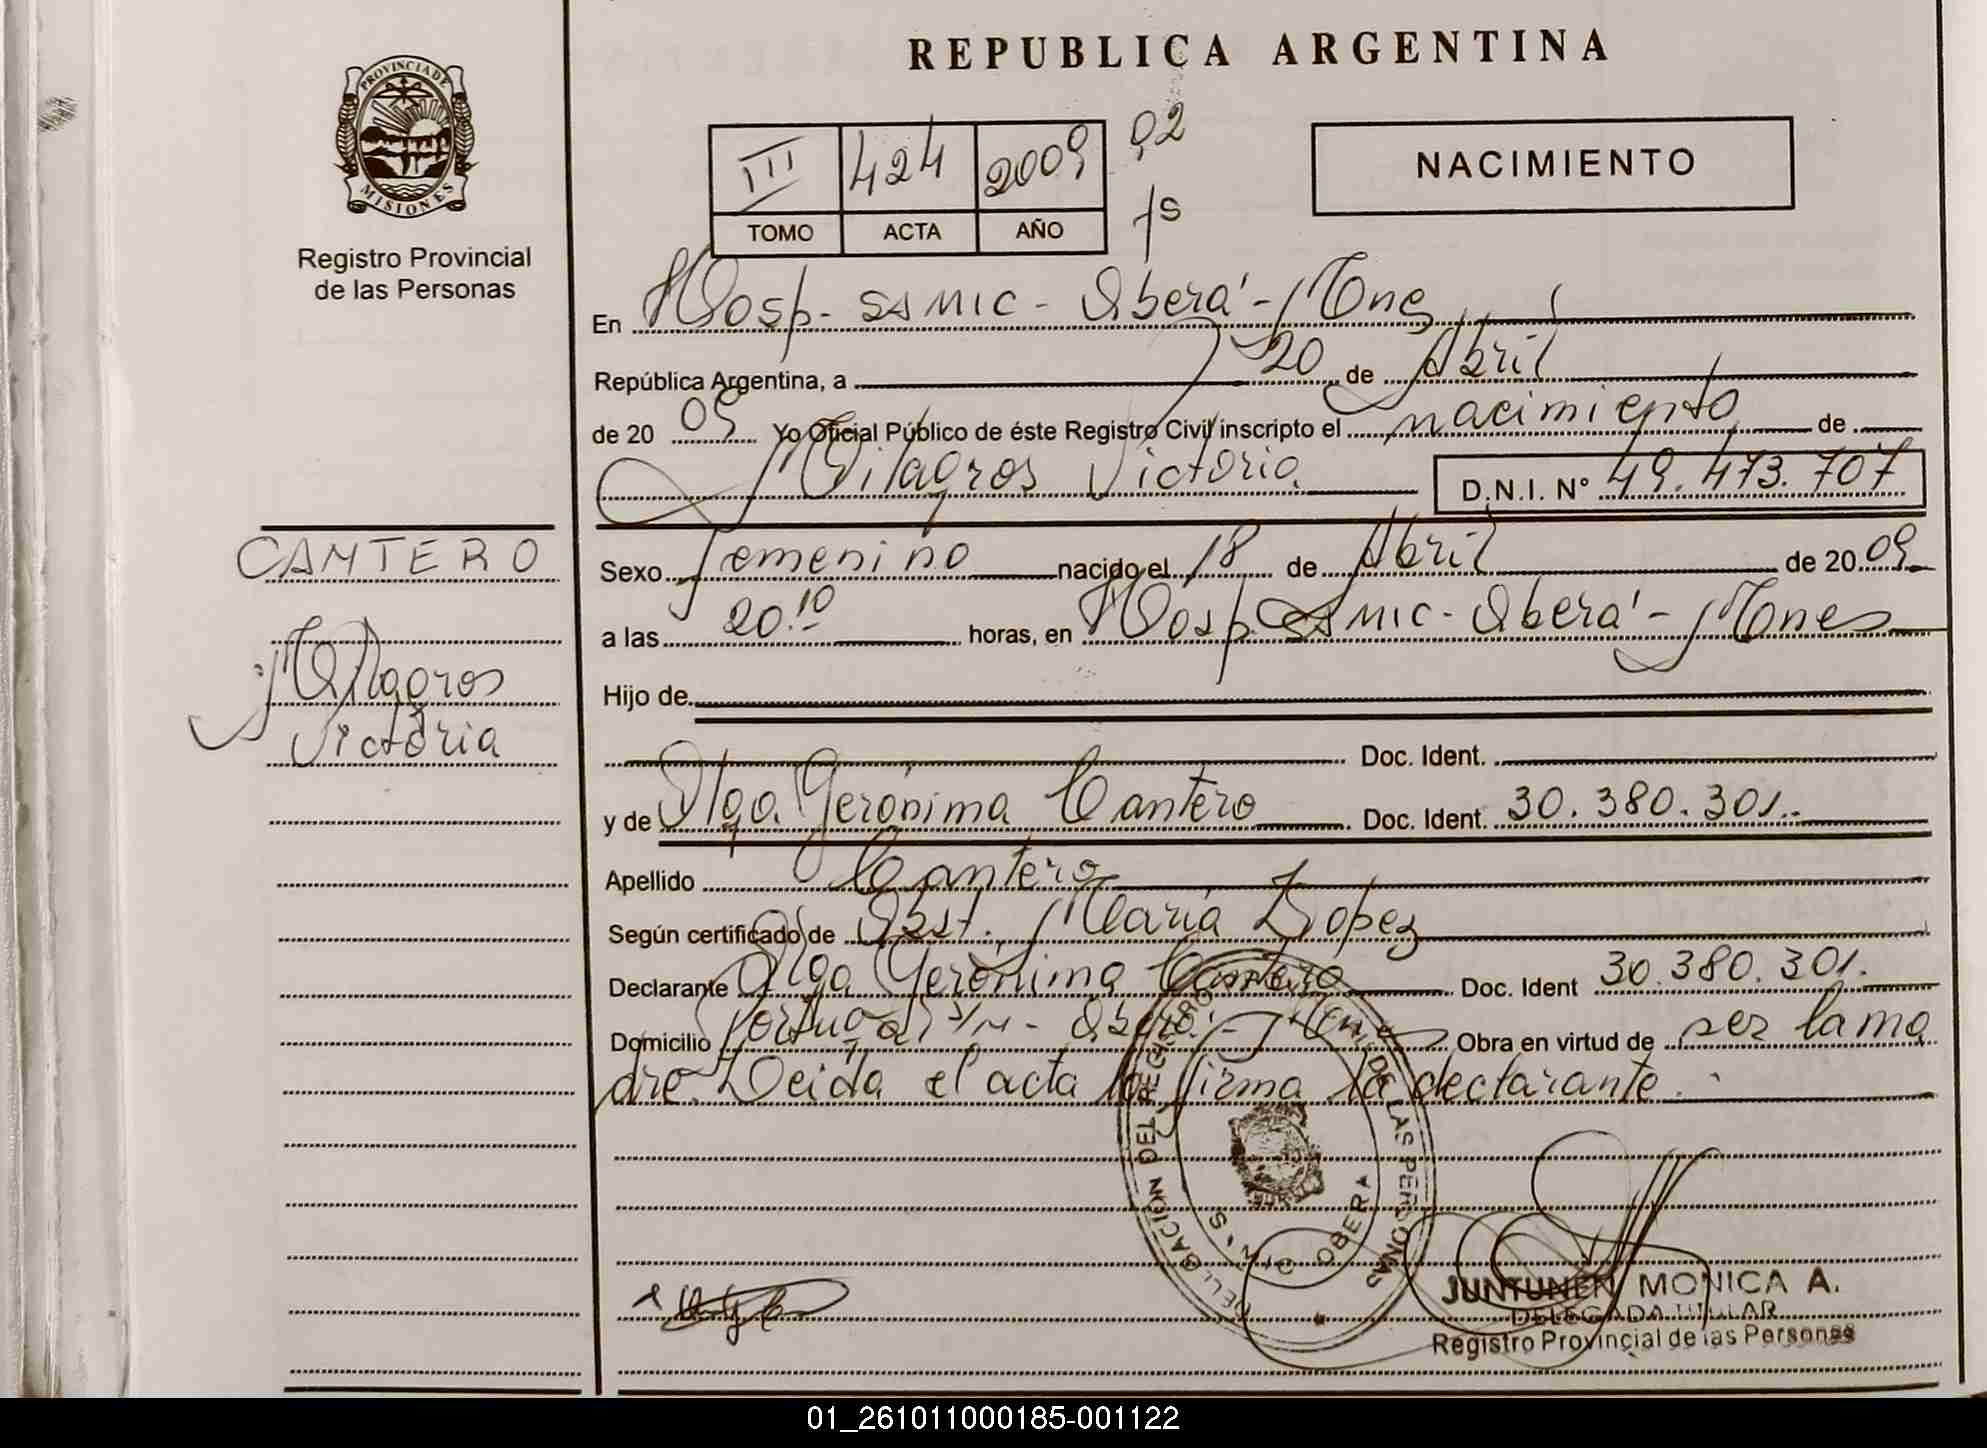 REPUBLICA ARGENTINA
PROVINCIA DE
MISIONES
Registro Provincial
de las Personas
III 424 2009 92
TOMO ACTA AÑO fs
NACIMIENTO
En Hosp. SAMIC - Oberá - Mnes
República Argentina, a 20 de Abril
de 20 09 Yo Oficial Público de éste Registro Civil inscripto el nacimiento de
Milagros Victoria D.N.I. N° 49.473.707
CANTERO
Milagros
Victoria
Sexo femenino nacido el 18 de Abril de 20 09
a las 20.10 horas, en Hosp. SAMIC - Oberá - Mnes
Hijo de
Doc. Ident.
y de Olga Gerónima Cantero Doc. Ident. 30.380.301.
Apellido Cantero
Según certificado de Obst. María Lopez
Declarante Olga Gerónima Cantero Doc. Ident 30.380.301.
Domicilio Portugal s/n - Oberá - Mnes Obra en virtud de ser la ma
dre. Leida el acta la firma la declarante.
DELEGACION DEL REGISTRO PROVINCIAL DE LAS PERSONAS
OBERA
JUNTUNEN MONICA A.
DELEGADA TITULAR
Registro Provincial de las Personas
01_261011000185-001122